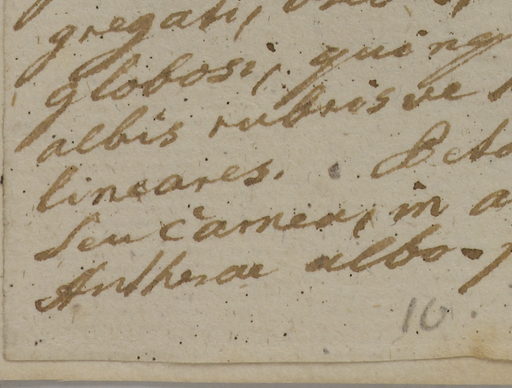 gregati,
globosi, quing
albis rubris ve
lineares. Peta
seu carnea, in a
Antherae albo-
10.